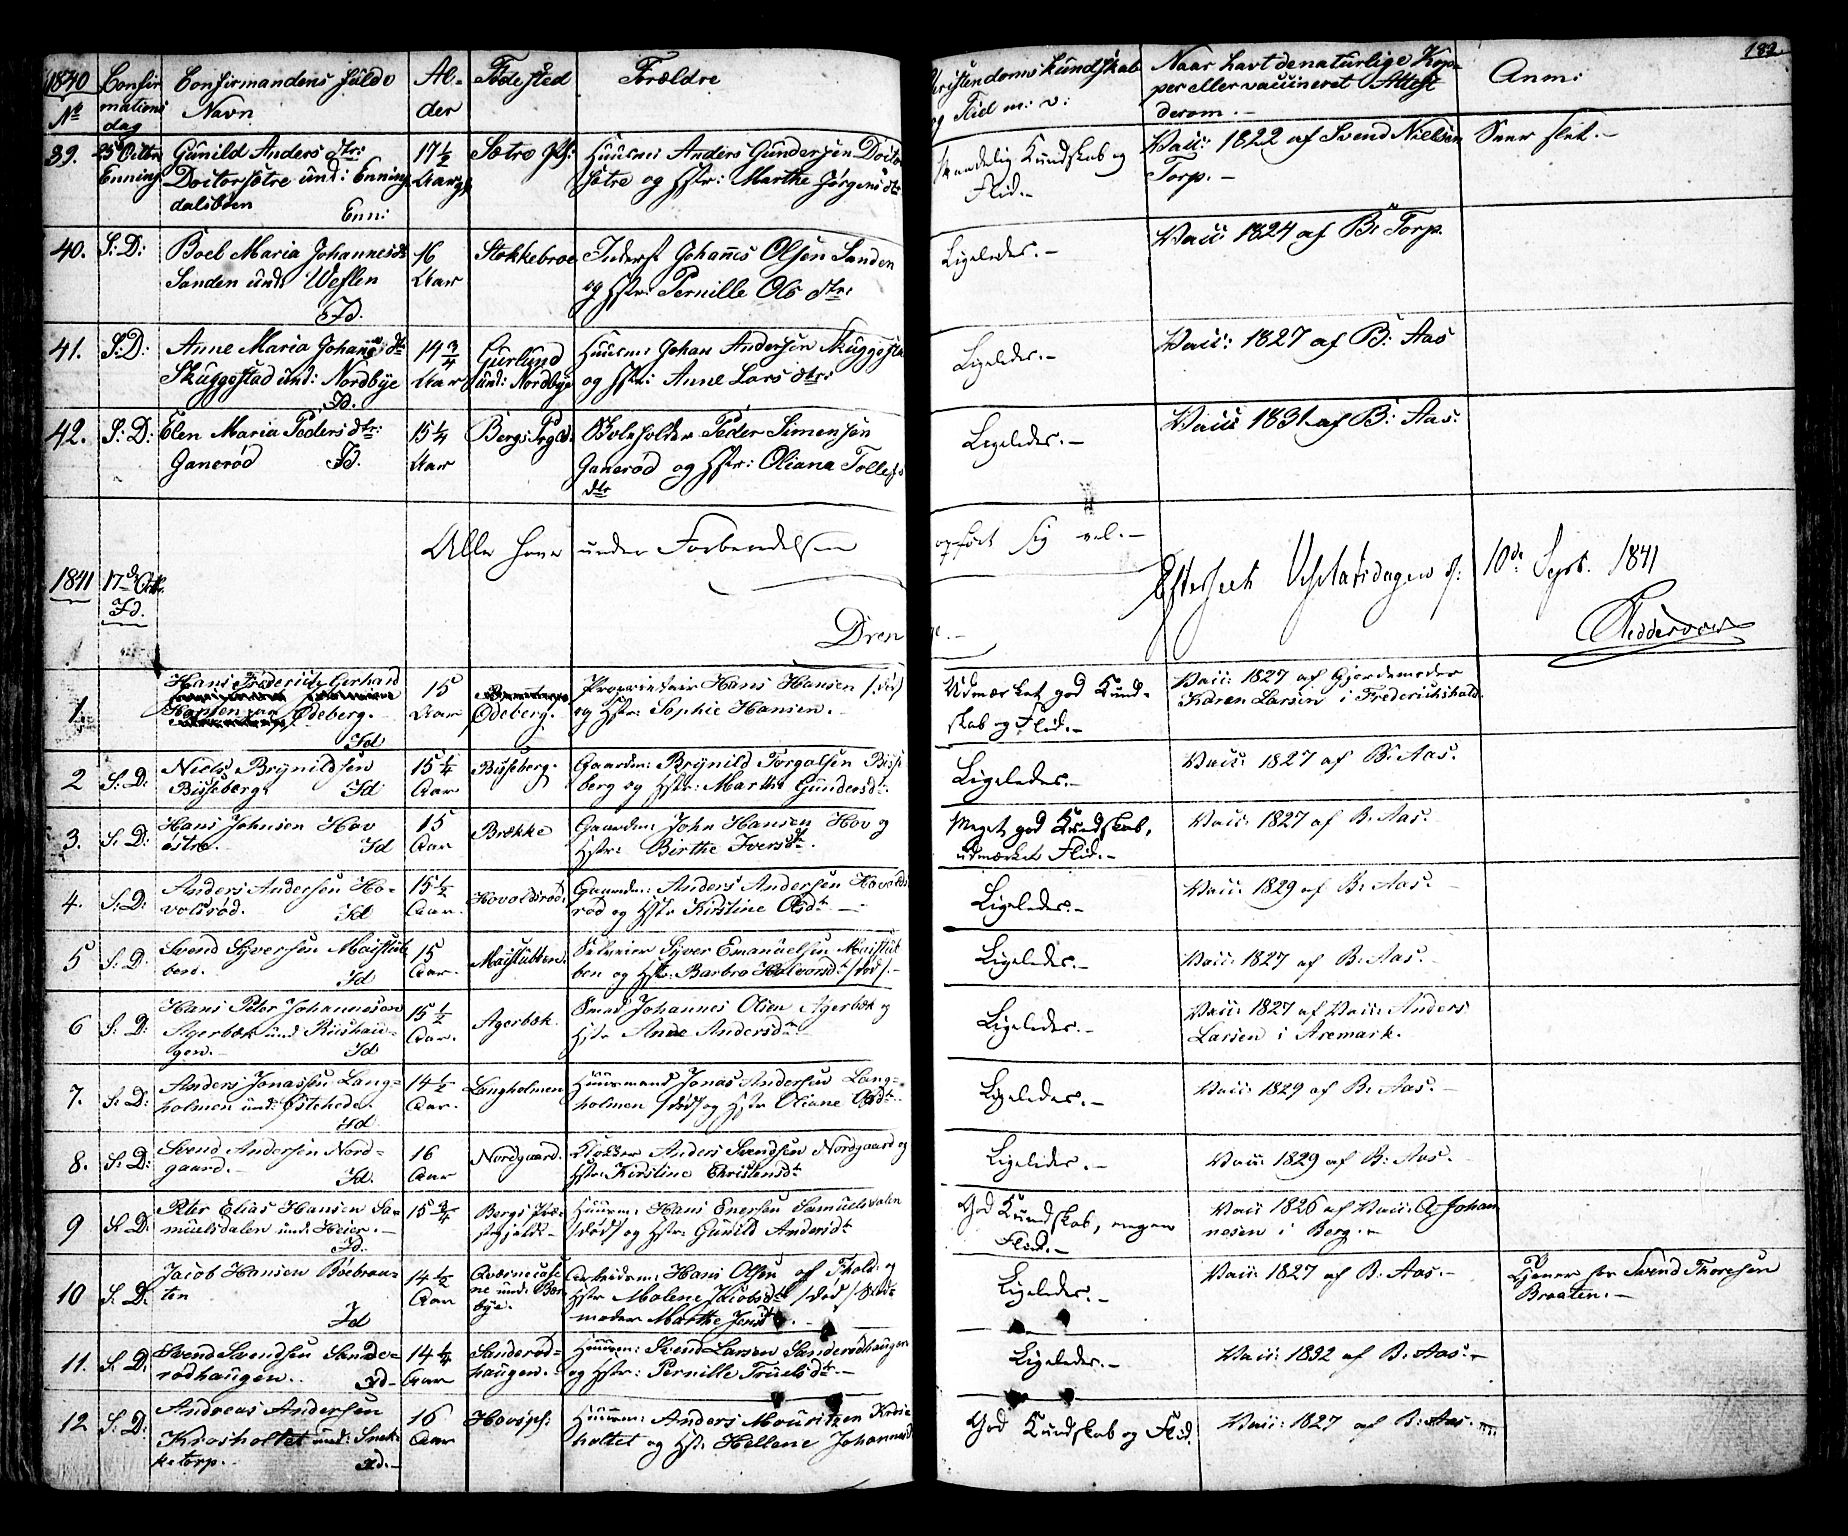 182.
1840
No
Confir
mations
dag
Confirmandens fulde
Navn
Al-
der
Fødested
Forældre
Christendomskundskab
og Flid m: v:
Naar havt de naturlige Kop-
per eller vaccineret Attest
derom. -
Anm:
39.
25 Octbr
Enning
Gunild Anders dtr:
Doctorsetre und: Enning
dalsboen
Enn:
17 1/2
Aar
Sætre
Huusm: Anders Gundersen Doctor
sætre og Hstr: Marthe Jørgens dtr
Maadelig Kundskab og
Flid. -
Vacc: 1822 af Svend Nielsen
Torp. -
40.
S: D:
Boel Maria Johannesdtr
Sanden und: Westen
Id.
16
Aar
Stokkebroe
Inderst Johannes Olsen Sanden
og Hstr: Pernille Ols dtr:
Ligeledes. -
Vacc: 1824 af B: Torp.
41.
S: D:
Anne Maria Johannes dtr
Skuggestad und: Nordbye
Id.
14 3/4
Aar
und: Nordbye
Huusm: Johan Andersen Skuggesta
og Hstr: Anne Lars dtr:
Ligeledes. -
Vacc: 1827 af B: Aas
42.
S: D:
Elen Maria Peders dtr:
Ganerød Id.
15 1/4
Aar
Bergs Prgld.
Peder Simensen
Ganerød og Hstr: Oliana Tollefs
dtr
Ligeledes. -
Vacc 1831 af B: Aas:
Alle have under Forberedelsen
opført sig vel. -
1841
17de Octbr.
Id.
Efterseet Visitatsdagen d: 10de Sept. 1841
Dren
ge. -
1.
Hans Frederich Gerhard
Hansen
Ødeberg.
Id
15
Aar
Ødeberg.
Proprietair Hans Hansen /død/
og Hstr: Sophie Hansen.
Udmærket god Kund-
skab og Flid. -
Vacc: 1827 af Gjordemoder
Karen Larsen i Frederikshald.
2
S: D:
Niels Brynildsen
Buseberg. Id
15 1/4
Aar
Buseberg.
Gaardm: Brynild Torgalsen Buse
berg og Hstr: Marthe Gundersdtr.
Ligeledes. -
Vacc: 1827 af B: Aas.
3.
S. D:
Hans Johnsen Hov
østre. Id
15
Aar
Brække
Gaardm: John Hansen Hov og
Hstr: Birthe Iversdtr.
Meget god Kundskab,
udmærket Flid. -
Vacc: 1827 af B. Aas.
4.
S: D:
Anders Andersen Ho-
volsrød. Id
15 1/2
Aar.
Hovoldsrød:
Gaardm: Anders Andersen Hovolds
rød og Hstr Kirstine Olsdtr -
Ligeledes. -
Vacc: 1829 af B: Aas. -
5
S: D:
Svend Syversen Maistub
ben. Id
15
Aar.
Maistubben:
Selveier Syver Emanuelsen Maistub
ben og Hstr: Barbro Halvorsdtr /død/. -
Ligeledes. -
Vacc: 1827 af B: Aas.
6
S: D:
Hans Peter Johannesen
Agerbæk und: Riishau-
gen. - Id
15 1/2
Aar.
Agerbæk.
Smed Johannes Olsen Agerbæk og
Hstr Anne Andersdtr
Ligeledes. -
Vacc: 1827 af Vacc: Anders
Larsen i Aremark.
7.
S: D:
Anders Jonassen Lang-
holmen und: Østehede.
Id
14 1/2
Aar.
Langholmen
Huusmand Jonas Andersen Lang-
holmen /død/ og Hstr Oliane Olsdtr.
Ligeledes. -
Vacc: 1829 af B: Aas. -
8.
S: D:
Svend Andersen Nord-
gaard. - Id.
16
Aar
Nordgaard.
Klokker Anders Svendsen Nordgaard og
Hstr: Kirstine Christensdtr
Ligeledes. -
Vacc: 1829 af B: Aas.
9
S: D:
Peter Elias Hansen Sa-
muelsdalen und: Heier. -
Id.
15 3/4
Bergs Præ-
stegjeld. -
Huusm: Hans Enersen Samuelsdalen
/død/ og Hstr: Gunild Andersdtr
God Kundskab, megen
Flid. -
Vacc 1826 af Vacc: A Johan
nesen i Berg. -
10
S: D:
Jacob Hansen Bøebraa-
ten
Id
14 1/2
Aar
Qværnecase
ne und: Bøe
bye.
Arbeidsm: Hans Olsen af Fhald: og
Hstr Malene Jacobsdtr /død/
moder Marthe
Ligeledes. -
Vacc: 1827 af B: Aas. -
Tjener for Svend Thoresen
Braaten. -
11.
S: D:
Svend Svendsen Sande-
rødhaugen. Id -
14 1/4
Aar
Sanderød-
haugen. -
Huusm: Svend Larsen Sanderødhaugen
og Hstr: Pernille Truelsdtr. -
Ligeledes. -
Vacc: 1832 af B: Aas. -
12
S: D:
Andreas Andersen
Krosholtet und: Snek-
ketorp. - Id. -
16
Aar
Hovs
Huusm: Anders Mouritzen Kros
holtet og Hstr: Hellene Johannesd
God Kundskab og Flid.
Vacc: 1827 af B: Aas.